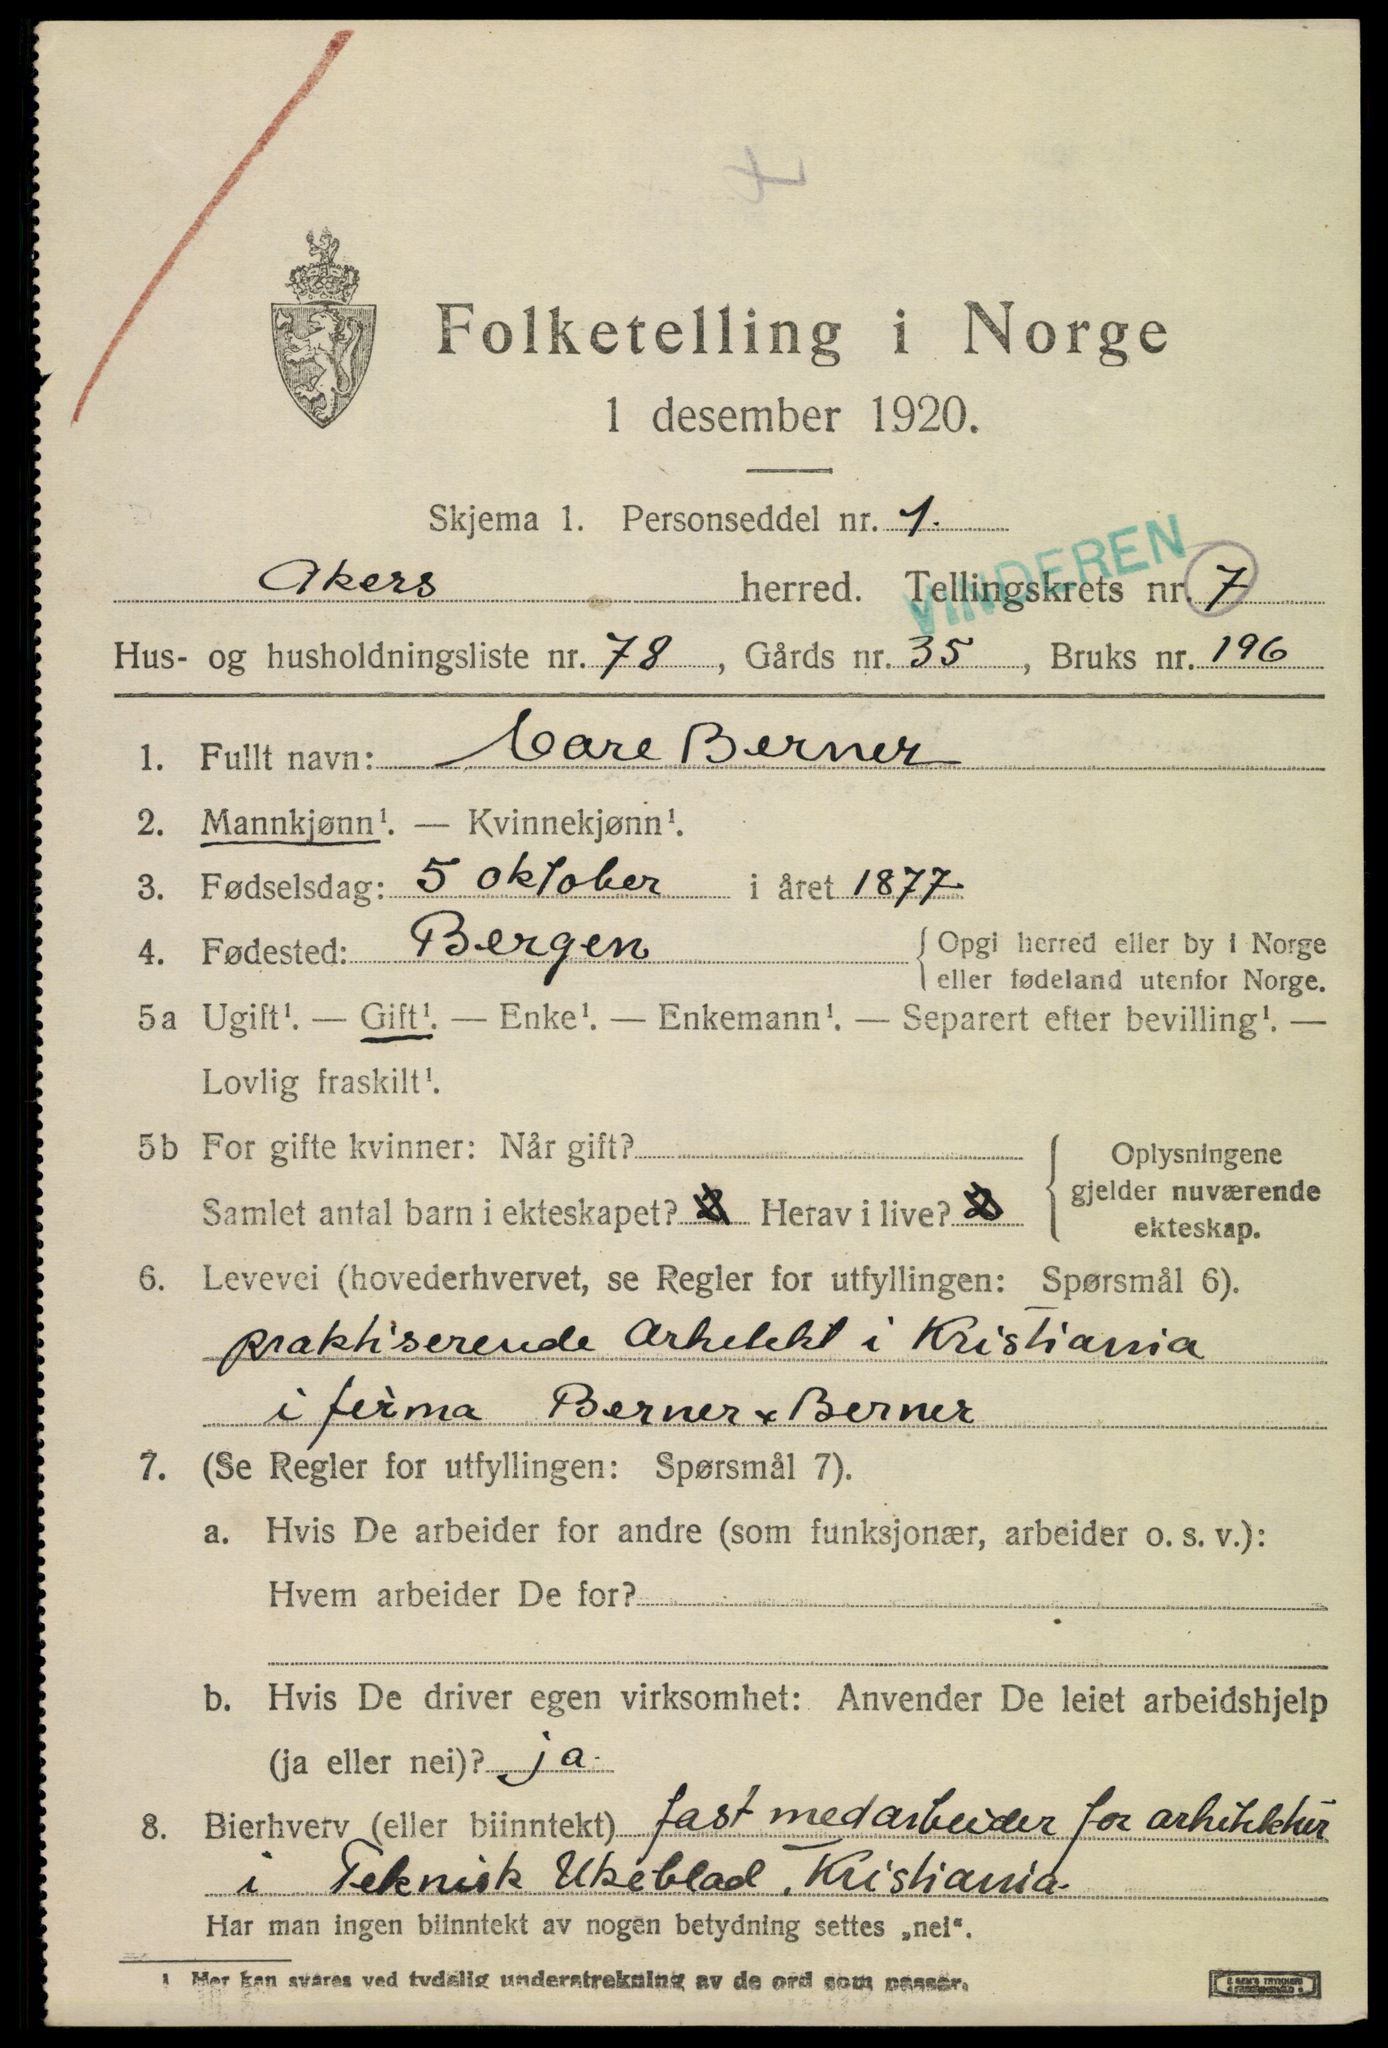 Folketelling i Norge
1 desember 1920.
Skjema 1. Personseddel nr. 1.
VINDEREN
Akers herred. Tellingskrets nr. 7
Hus- og husholdningsliste nr. 78, Gårds nr. 35, Bruks nr. 196
1. Fullt navn: Care Berner
2. Mannkjønn¹. — Kvinnekjønn¹.
3. Fødselsdag: 5 oktober i året 1877
4. Fødested: Bergen { Opgi herred eller by i Norge
eller fødeland utenfor Norge.
5a Ugift¹. — Gift¹. — Enke¹. — Enkemann¹. — Separert efter bevilling¹. —
Lovlig fraskilt¹.
5b For gifte kvinner: Når gift?
Samlet antal barn i ekteskapet? 2 Herav i live? 2
Oplysningene
gjelder nuværende
ekteskap.
6. Levevei (hovederhvervet, se Regler for utfyllingen: Spørsmål 6).
praktiserende Arkitekt i Kristiania
i firma Berner & Berner
7. (Se Regler for utfyllingen: Spørsmål 7).
a. Hvis De arbeider for andre (som funksjonær, arbeider o. s. v.):
Hvem arbeider De for?
b. Hvis De driver egen virksomhet: Anvender De leiet arbeidshjelp
(ja eller nei)? ja.
8. Bierhverv (eller biinntekt) fast medarbeider for arkitektur
i Teknisk Ukeblad, Kristiania.
Har man ingen biinntekt av nogen betydning settes „nei“.
1 Her kan svares ved tydelig understrekning av de ord som passer.